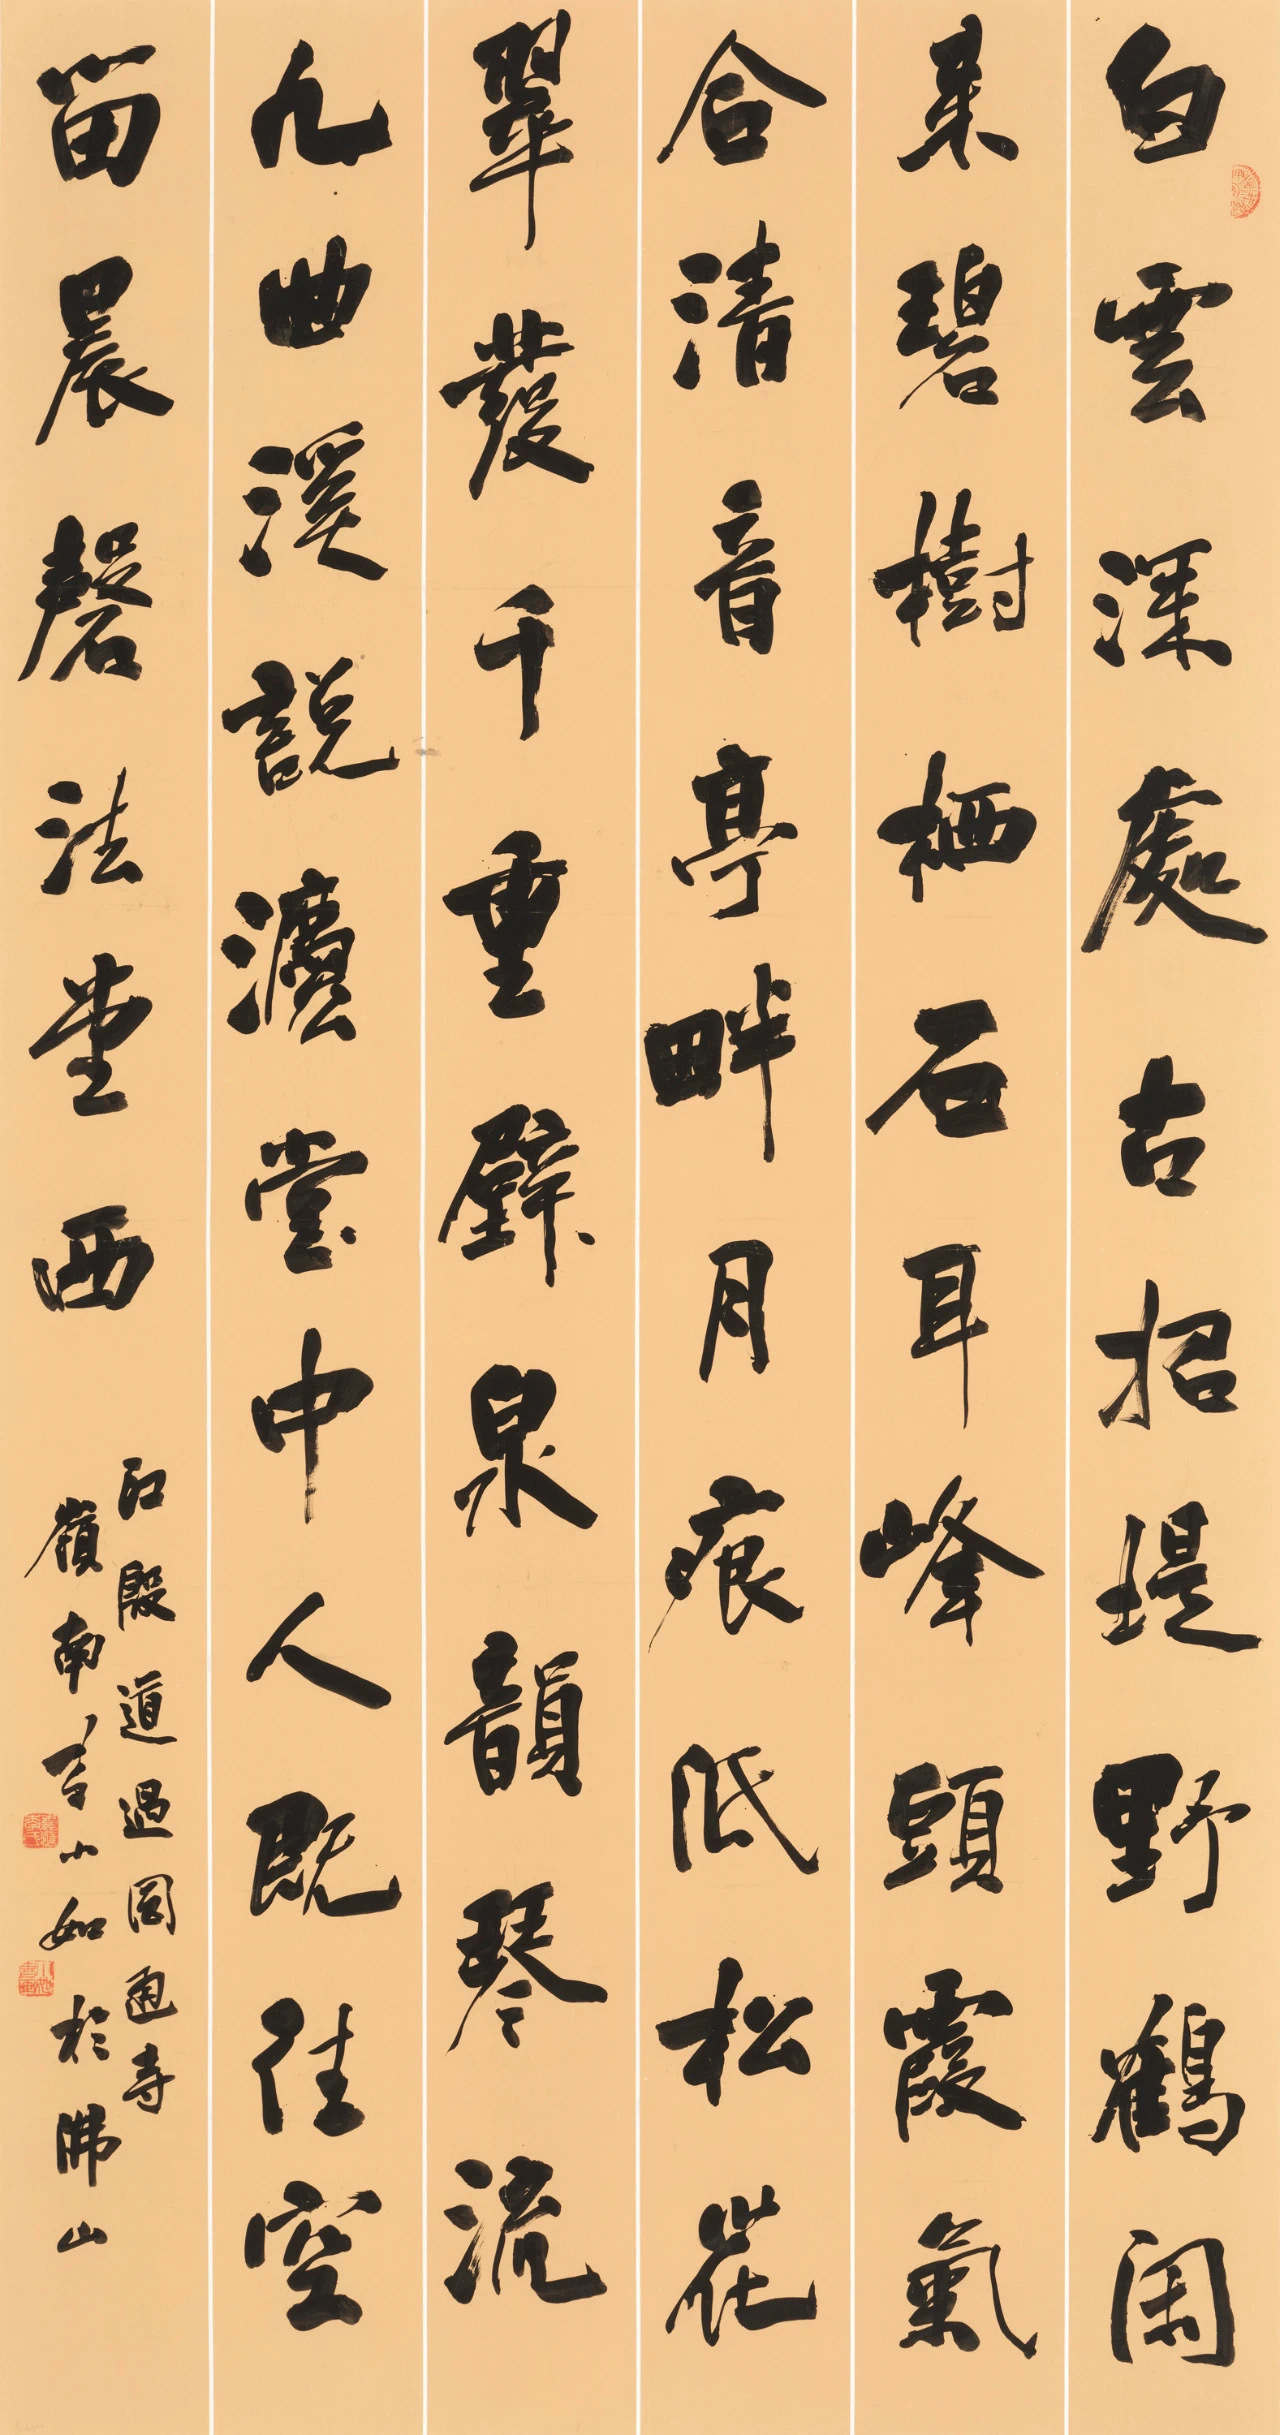 白雲深處古招堤野鶴閑
来碧樹栖石耳峰頭霞氣
合清音亭畔月痕低松花
翠發千重壁泉韻琴流
九曲溪說灋堂中人既往空
留晨磬法堂西
江殷道過圓通寺
嶺南李小如於佛山